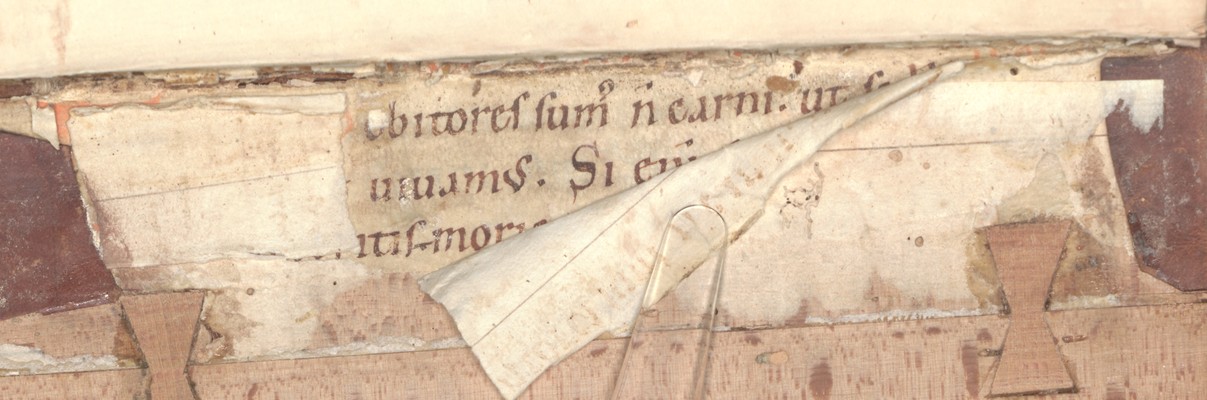 ebitores sum⁹ n̄ carni. ut s
uiuam⁹. Si eni
itis mori